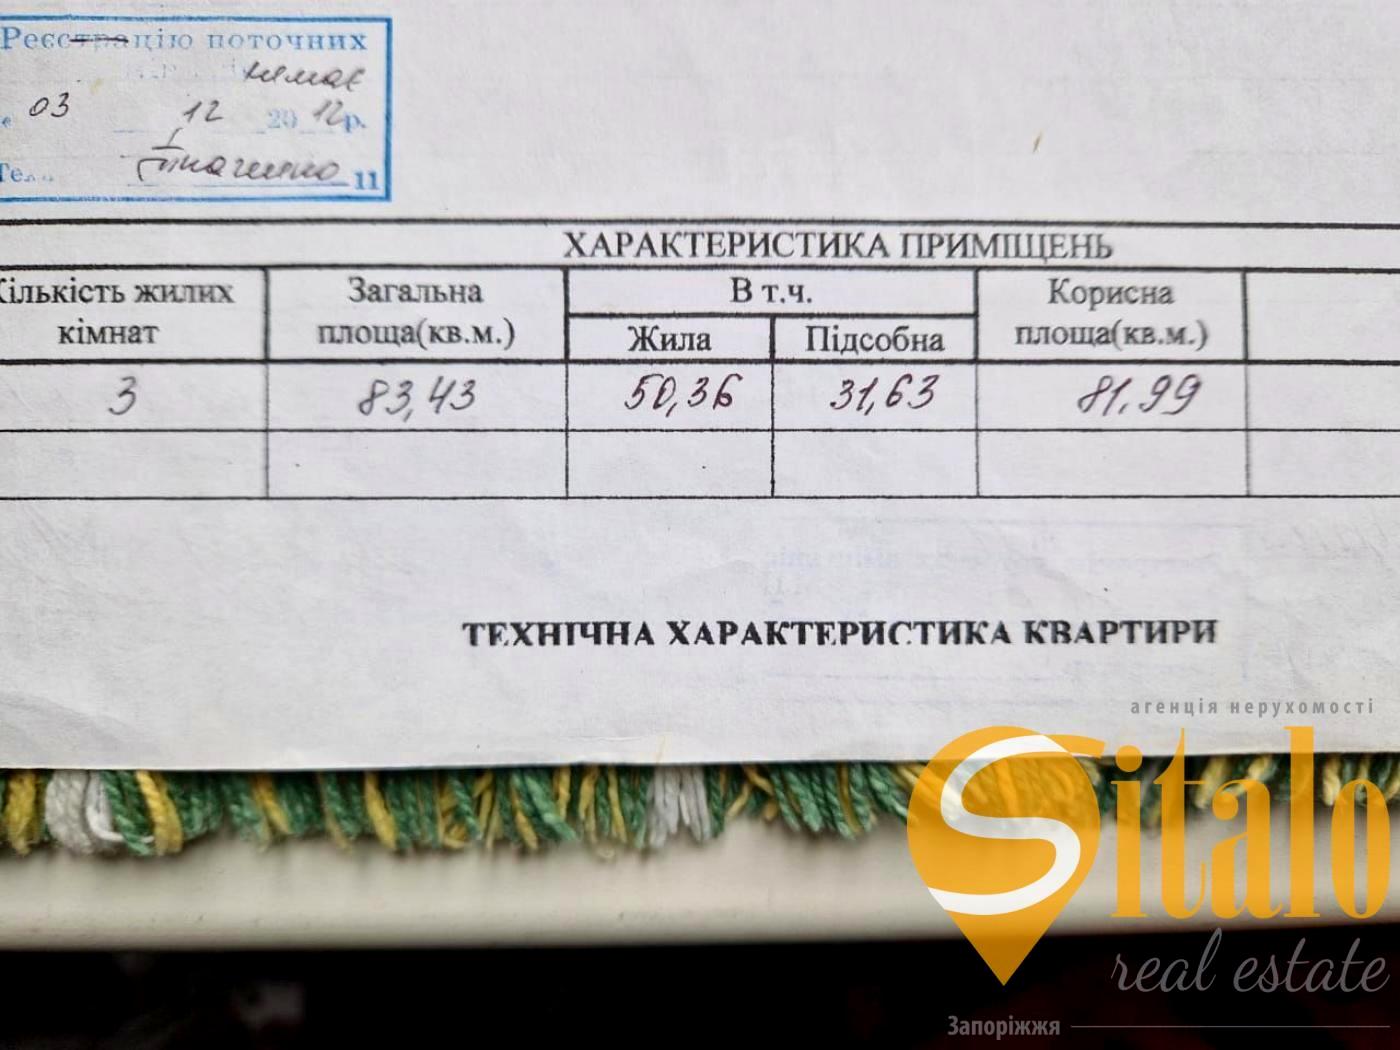 Реєстрацію поточних
немає
03 12 2012р.
11
ХАРАКТЕРИСТИКА ПРИМІЩЕНЬ
Кількість жилих кімнат
Загальна площа(кв.м.)
В т.ч.
Жила
Підсобна
Корисна площа(кв.м.)
3 83,43 50,36 31,63 81,99
ТЕХНІЧНА ХАРАКТЕРИСТИКА КВАРТИРИ
агенція нерухомості
Sitalo
real estate
Запоріжжя